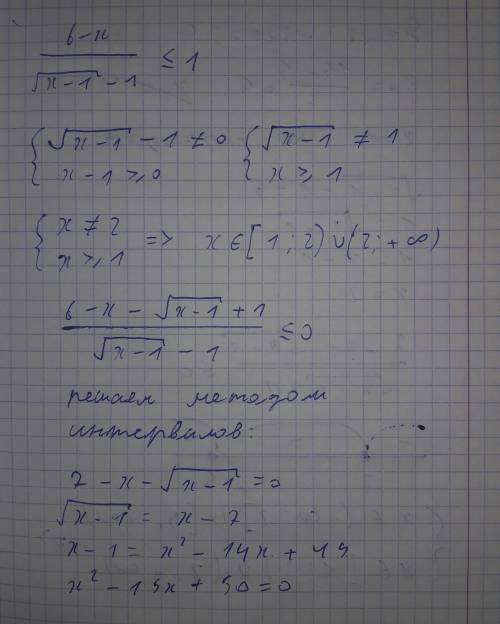 (6-x)/(√(x-1) - 1) ≤ 1
{ √(x-1) - 1 ≠ 0 { √(x-1) ≠ 1
x - 1 ≥ 0 x ≥ 1
{ x ≠ 2
x ≥ 1 => x ∈ [1; 2) ∪ (2; +∞)
(6 - x - √(x-1) + 1)/(√(x-1) - 1) ≤ 0
решаем методом
интервалов:
7 - x - √(x-1) = 0
√(x-1) = x - 7
x - 1 = x² - 14x + 49
x² - 15x + 50 = 0